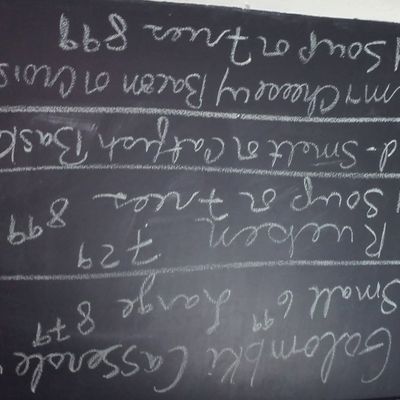 Golombki Casserole
Small 6 99 Large 8 79
Rueben 7 29
Soup or Fries 8 99
d - Smelt or Catfish Bask
Cheeery Bacon on Crois
Soup or Fries 8 99